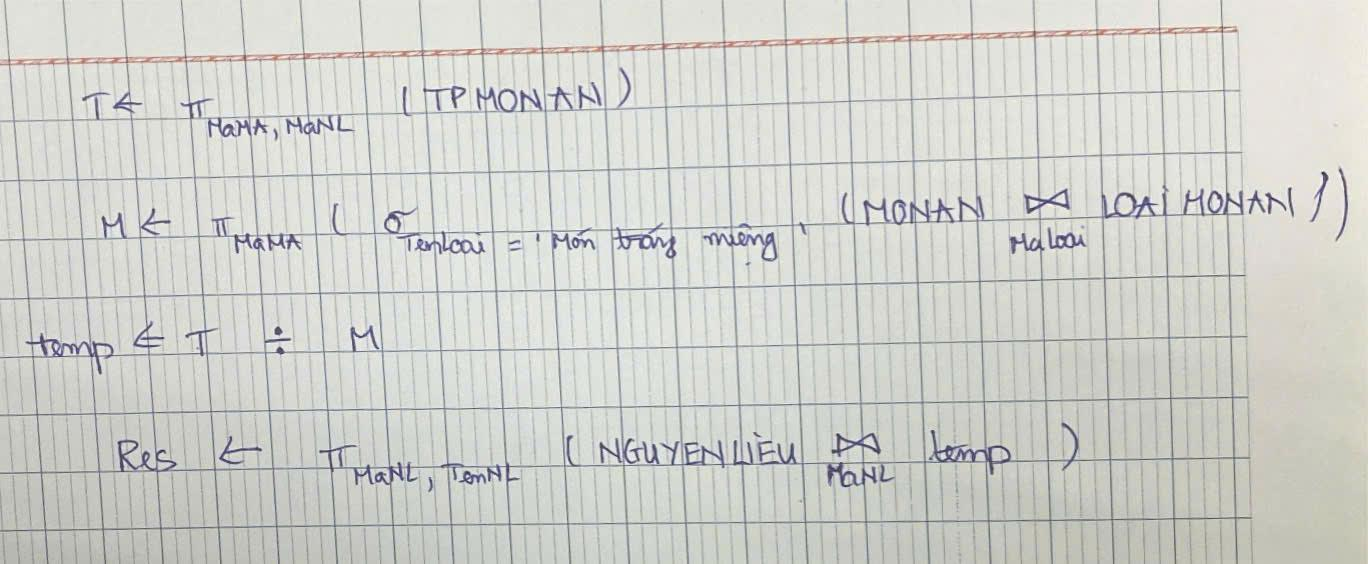 T ← π MaMA, MaNL (TPMONAN)
M ← π MaMA ( σ Tenloai = 'Món tráng miệng' (MONAN ⋈ Maloai LOAIMONAN))
temp ← T ÷ M
Res ← π MaNL, TenNL (NGUYENLIEU ⋈ MaNL temp)